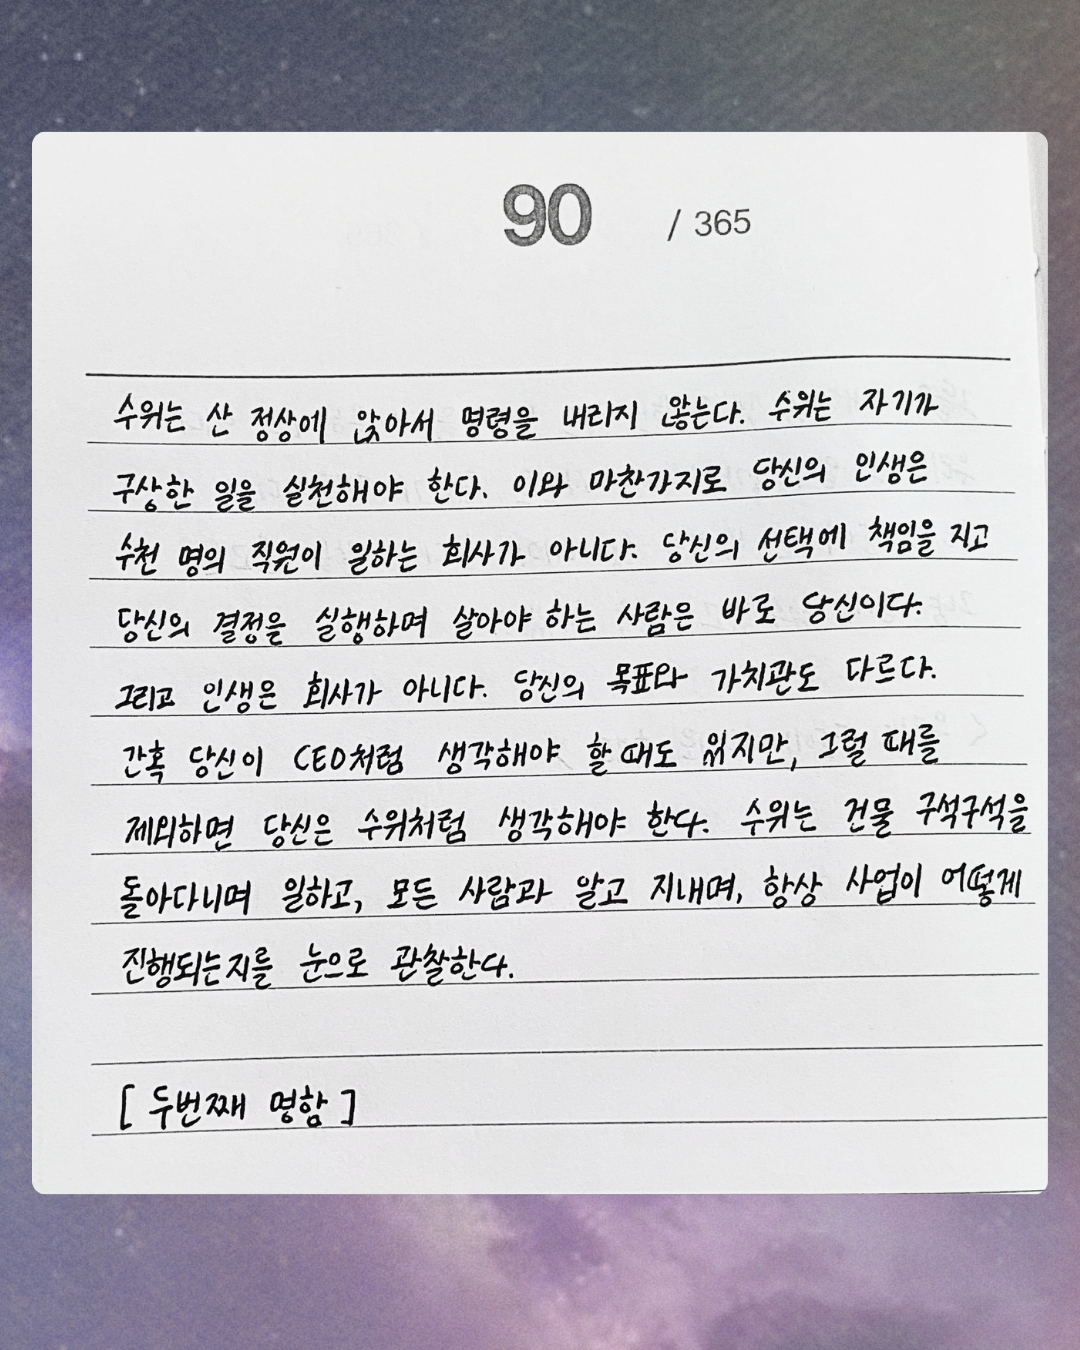 90 / 365
수위는 산 정상에 앉아서 명령을 내리지 않는다. 수위는 자기가
구상한 일을 실천해야 한다. 이와 마찬가지로 당신의 인생은
수천 명의 직원이 일하는 회사가 아니다. 당신의 선택에 책임을 지고
당신의 결정을 실행하며 살아야 하는 사람은 바로 당신이다.
그리고 인생은 회사가 아니다. 당신의 목표와 가치관도 다르다.
간혹 당신이 CEO처럼 생각해야 할 때도 있지만, 그럴 때를
제외하면 당신은 수위처럼 생각해야 한다. 수위는 건물 구석구석을
돌아다니며 일하고, 모든 사람과 알고 지내며, 항상 사업이 어떻게
진행되는지를 눈으로 관찰한다.
[ 두번째 명함 ]